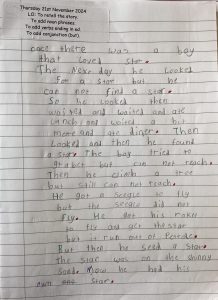 Thursday 21st November 2024
LO: To retell the story.
To add noun phrases.
To add verbs ending in ed.
To add conjunction (but).
once there was a boy
that loved star.
The next day he looked
for a star but he
can not find a star.
So he looked then
waited and waited and ate
lunch and waited a bit
more and ate diner. Then
looked and then he found
a star. The boy tried to
grabet but can not reach.
Then he climb a tree
but still can not reach.
He got a seegle to fly
but the seegle did not
fly. He got his roket
to fly and get the star
but it run out of
But then he seed a star
the star was on the shinny
sand. Now he had his
own star.